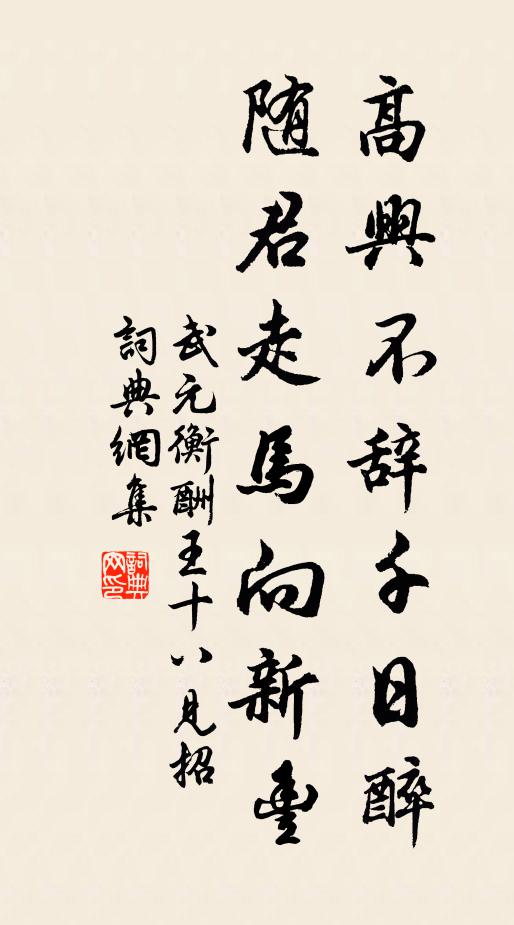 高興不辞千日醉
随君走馬向新豐
武元衡酬王十八見招
詞典網集
詞典网印